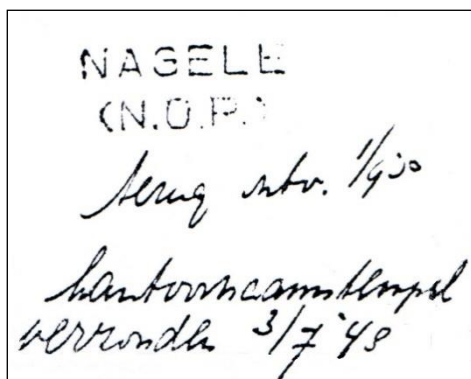 NAGELE
(N.O.P.)
terug ontv. 1/9 50
kantoornaamstempel
verzonden 3/7 '48